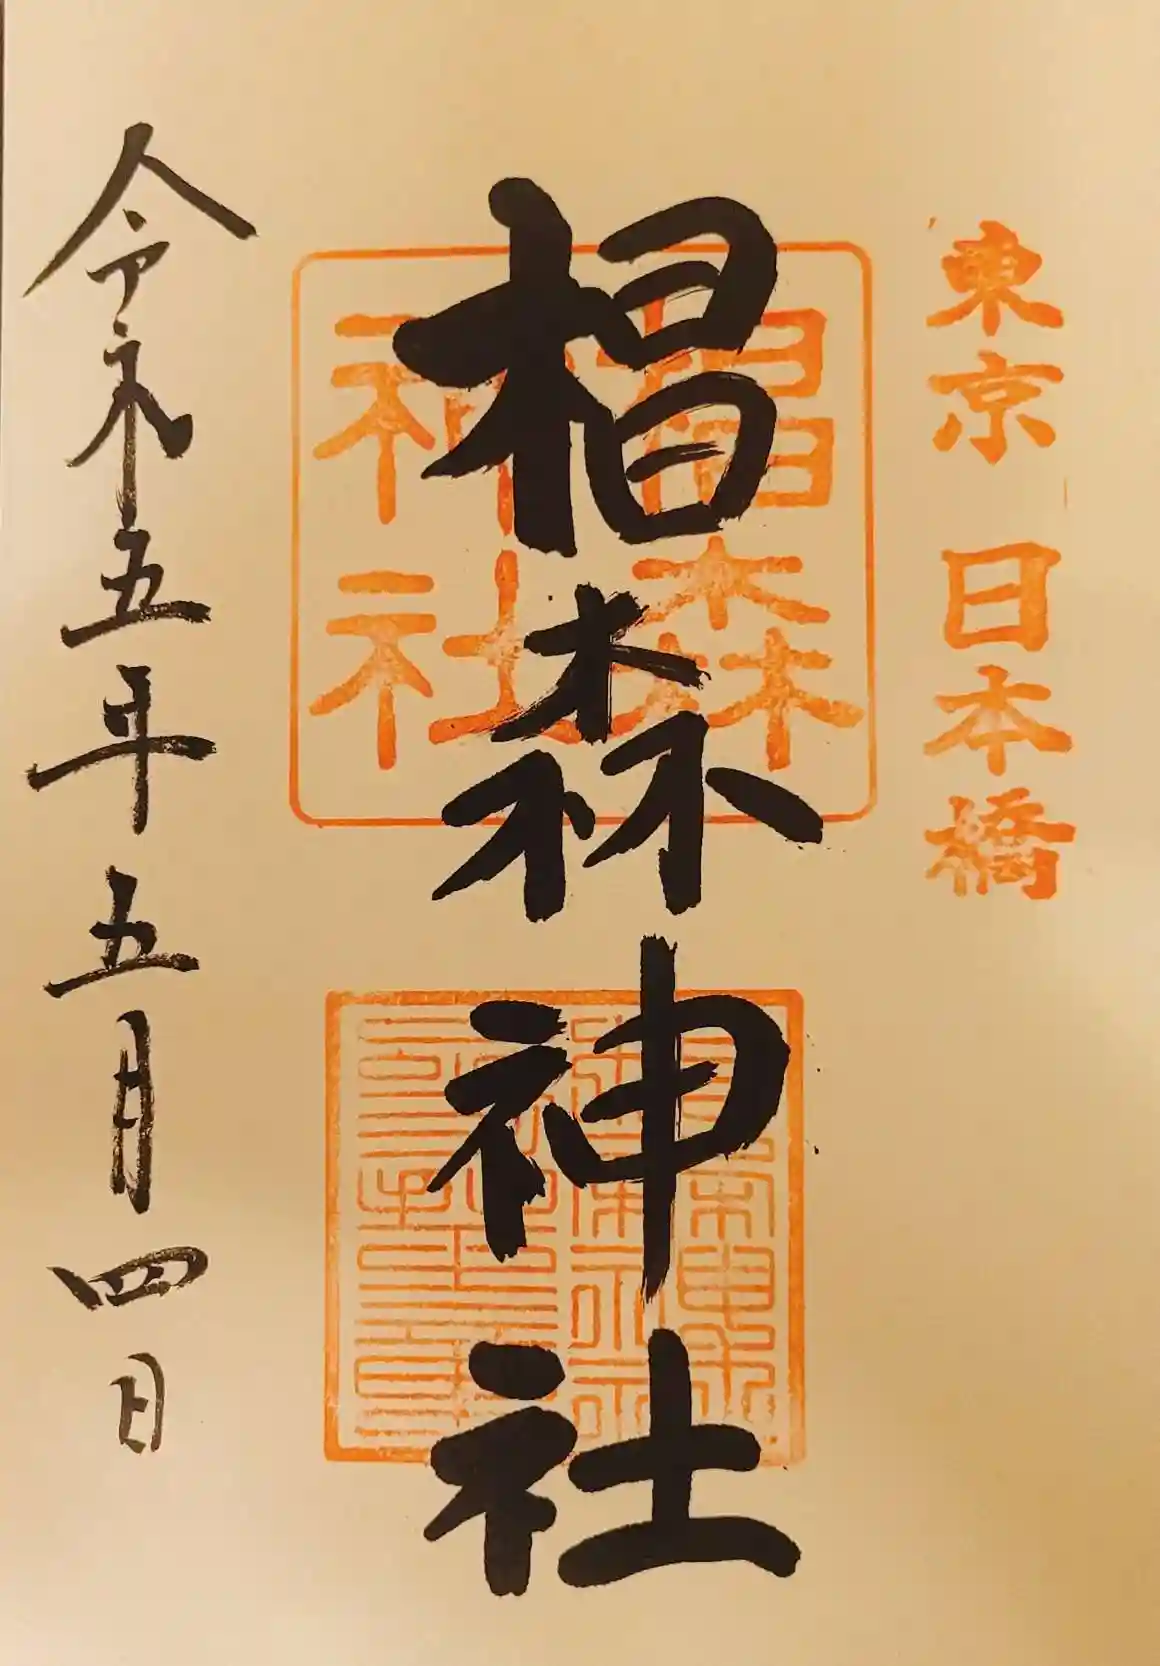 東京 日本橋
椙森神社
椙森
神社
令和五年五月四日